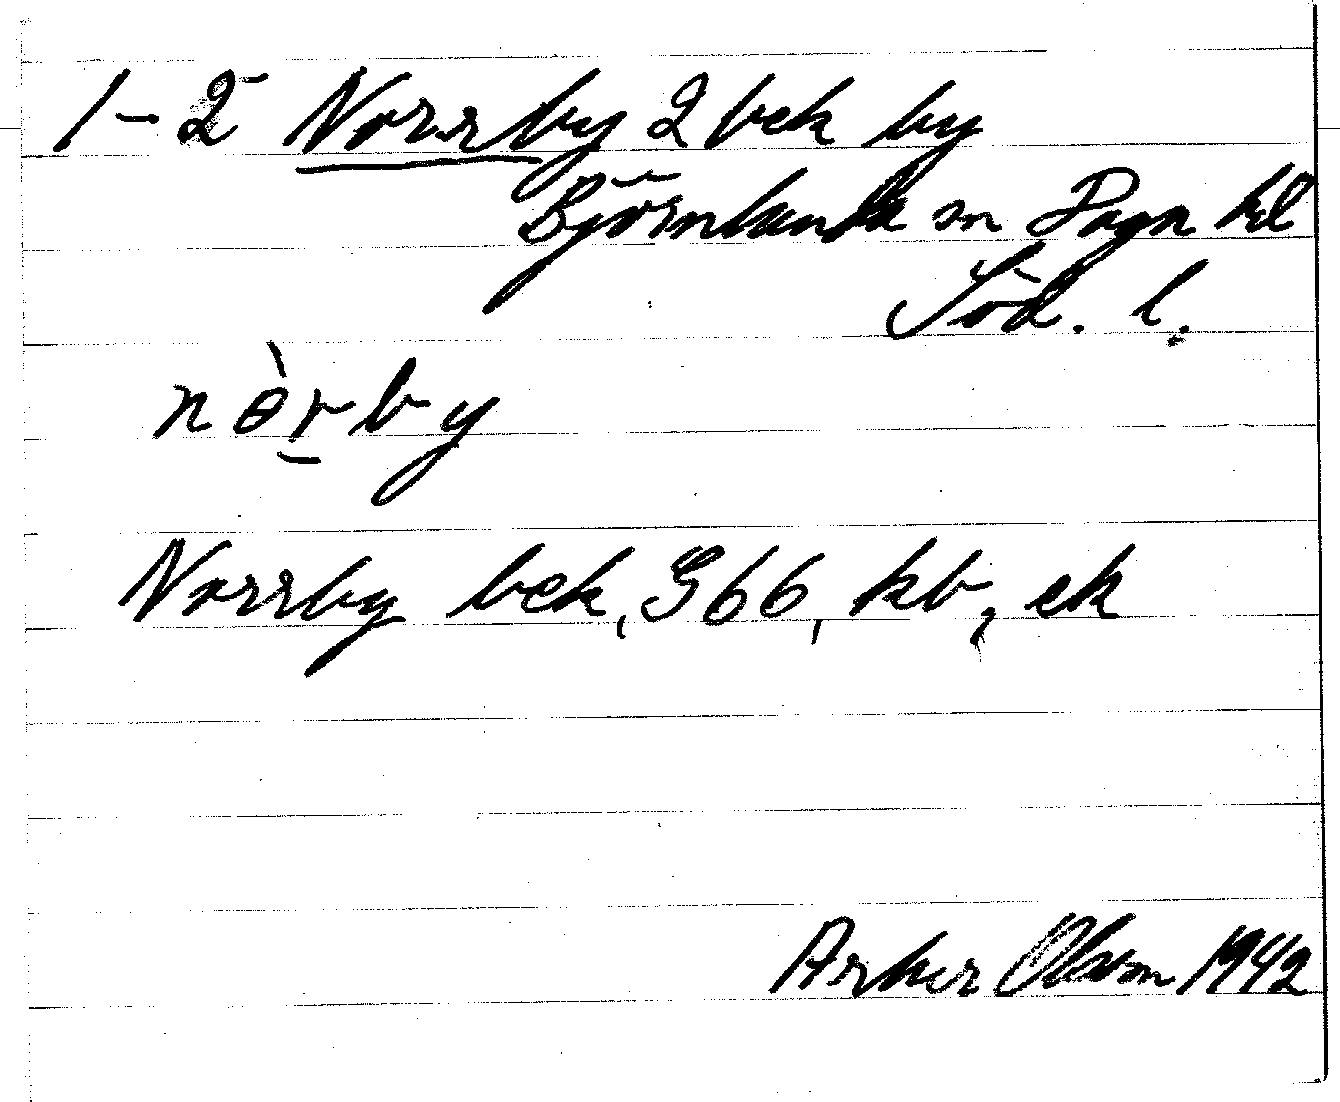 1-2 Norrby 2 bek by
Björnlunda sn Daga hd
Söd. l.
nòrby
Norrby bek, G66, kb, ek
Artur Olsson 1942